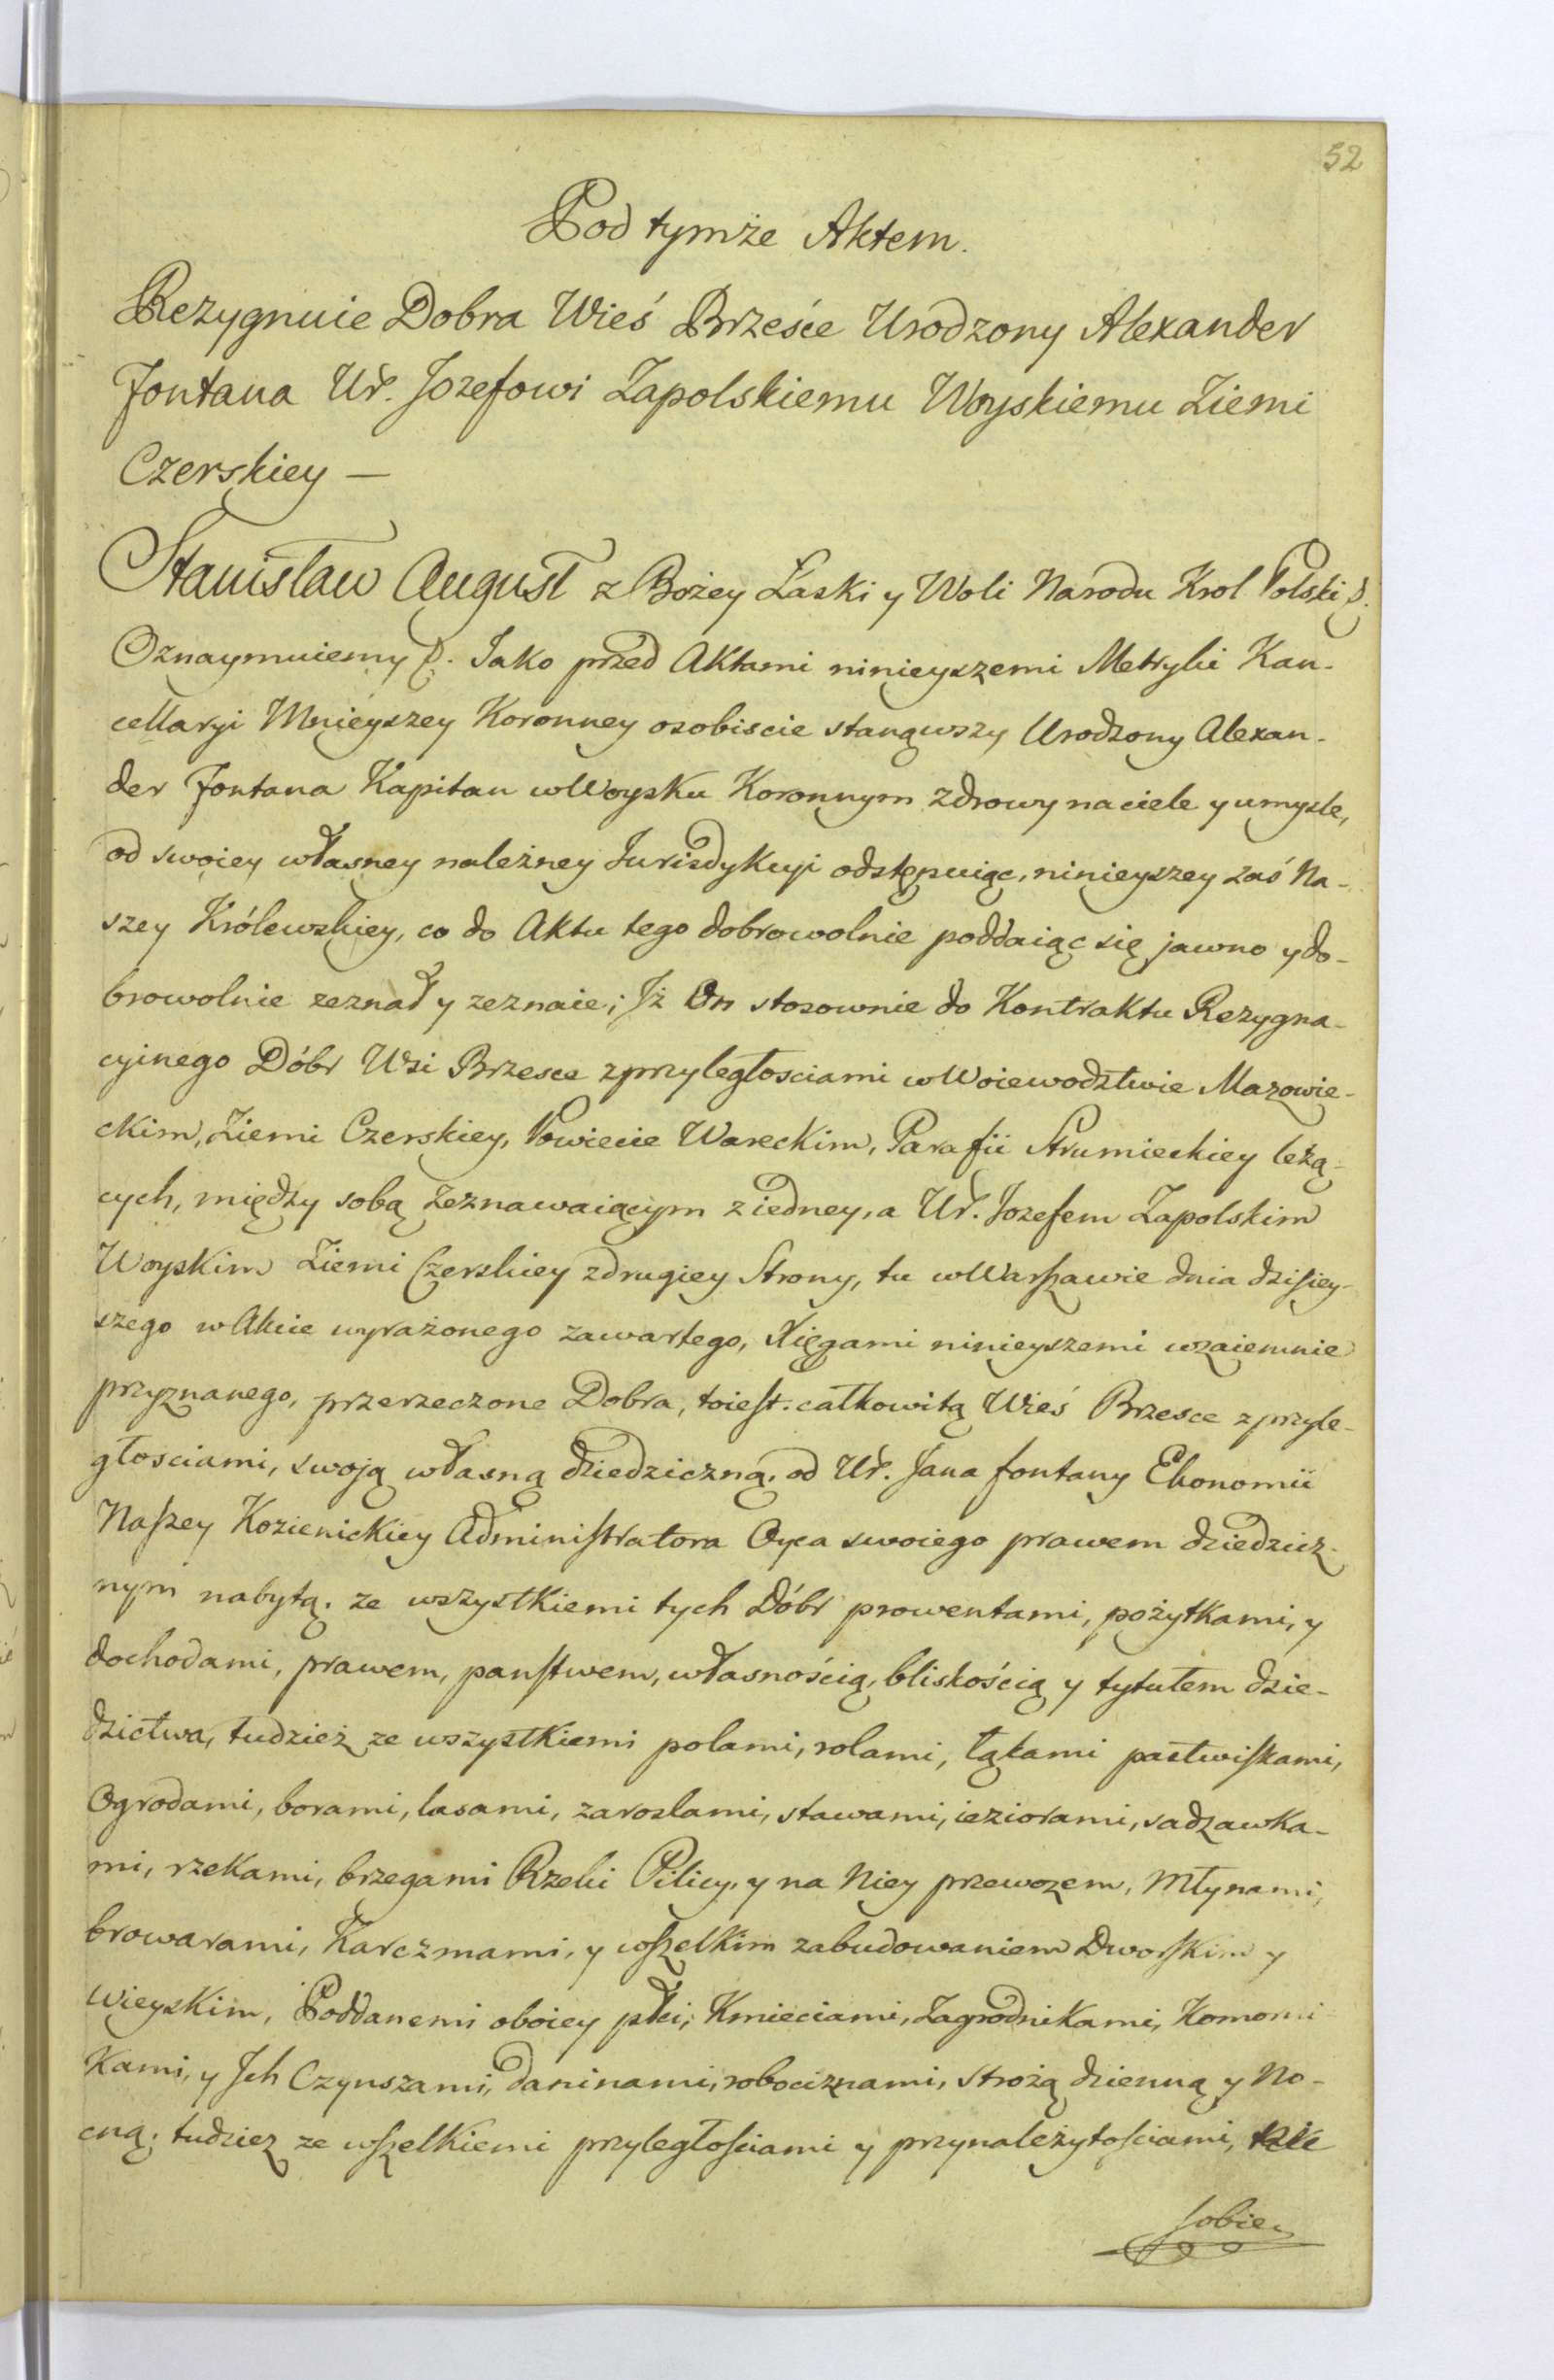 52
Pod tymże Aktem.
Rezygnuie Dobra Wieś Brzeście Urodzony Alexander
Fontana Ur. Jozefowi Zapolskiemu Woyskiemu Ziemi
Czerskiey —
Stanisław August z Bożey Łaski y Woli Narodu Krol Polski &.
Oznaymuiemy &. Jako przed Aktami ninieyszemi Metryki Kan-
cellaryi Mnieyszey Koronney osobiscie stanąwszy Urodzony Alexan-
der Fontana Kapitan w Woysku Koronnym zdrowy na ciele y umysle,
od swoiey własney należney Jurisdykcyi odstępuiąc, ninieyszey zaś Na-
szey Królewskiey, co do Aktu tego dobrowolnie poddaiąc się jawno y do-
browolnie zeznał y zeznaie; Jż On stosownie do Kontraktu Rezygna-
cyinego Dóbr Wsi Brzesce z przyległosciami w Woiewodztwie Mazowie-
ckim, Ziemi Czerskiey, Powiecie Wareckim, Parafii Strumieckiey leżą-
cych, między sobą Zeznawaiącym z iedney, a Ur. Jozefem Zapolskim
Woyskim Ziemi Czerskiey z drugiey Strony, tu w Warszawie dnia dzisiey-
szego w Akcie wyrażonego zawartego, Xięgami ninieyszemi wzaiemnie
przyznanego, przerzeczone Dobra, toiest: całkowitą Wieś Brzesce z przyle-
głosciami, swoją własną dziedziczną, od Ur. Jana Fontany Ekonomii
Naszey Kozienickiey Administratora Oyca swoiego prawem dziedzicz-
nym nabytą, ze wszystkiemi tych Dóbr prowentami, pożytkami, y
dochodami, prawem, panstwem, własnością, bliskością y tytułem dzie-
dzictwa, tudzież ze wszystkiemi polami, rolami, łąkami pastwiskami,
Ogrodami, borami, lasami, zaroslami, stawami, ieziorami, sadzawka-
mi, rzekami, brzegami Rzeki Pilicy, y na Niey przewozem, Młynami,
browarami, Karczmami, y wszelkim zabudowaniem Dworskim y
wieyskim, Poddanemi oboiey płci, Kmieciami, Zagrodnikami, Komorni-
kami, y Jch Czynszami, daninami, robociznami, strożą dzienną y No-
cną; tudziez ze wszelkiemi przyległościami y przynależytościami,
sobie